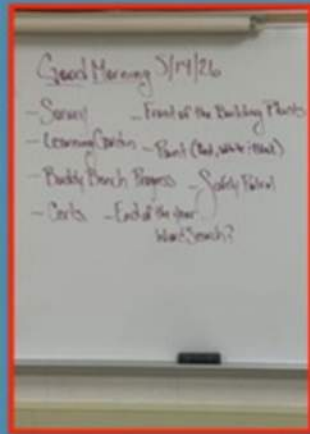 Good Morning 5/14/26
- Survey - Front of the Building Plants
- Learning Garden - Paint (Red, White & Blue)
- Buddy Bench Progress - Safety Patrol
- Certs - End of the year
Word Search?